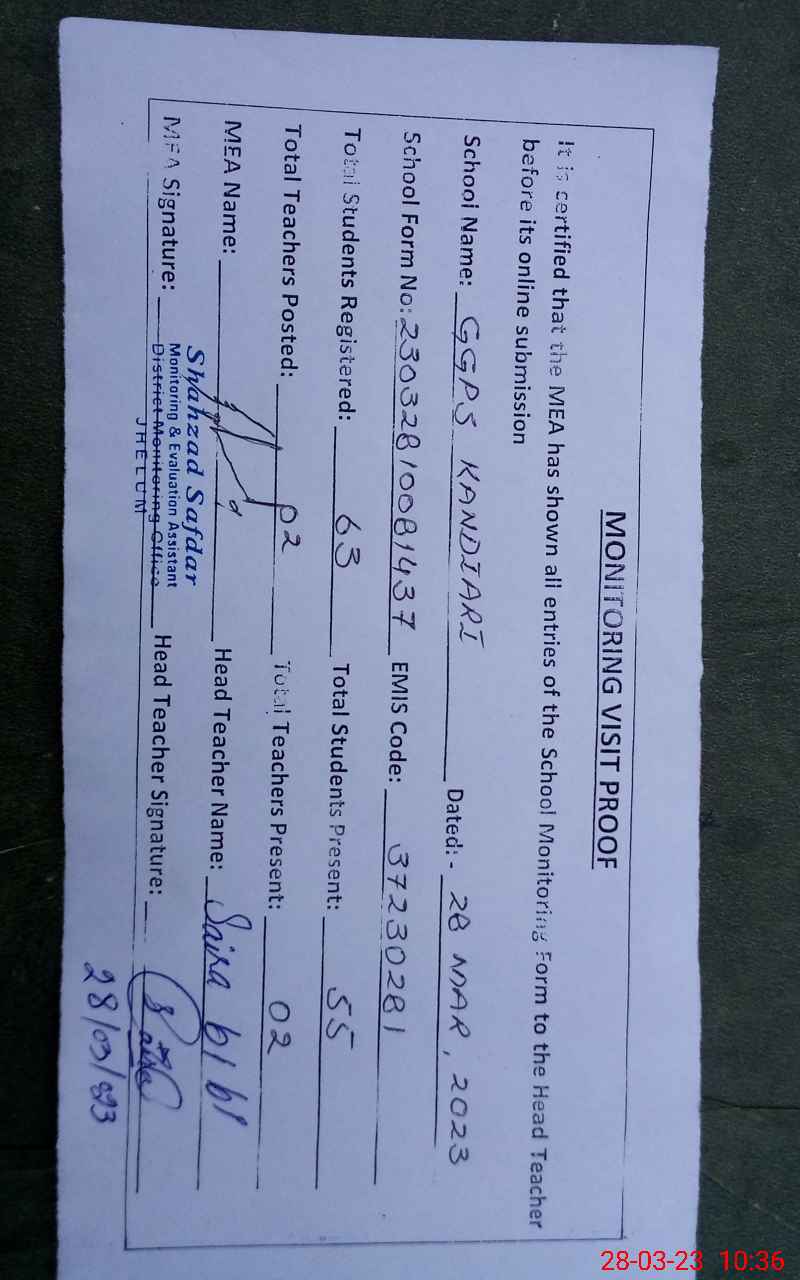 MONITORING VISIT PROOF
It is certified that the MEA has shown all entries of the School Monitoring Form to the Head Teacher
before its online submission
School Name: GGPS KANDIARI Dated: - 28 MAR, 2023
School Form No: 23032810081437 EMIS Code: 37230281
Total Students Registered: 63 Total Students Present: 55
Total Teachers Posted: 02 Total Teachers Present: 02
MEA Name: Head Teacher Name: Saira bibi
MEA Signature: Head Teacher Signature: Saira
Shahzad Safdar
Monitoring & Evaluation Assistant
District Monitoring Office
JHELUM
28/03/023
28-03-23 10:36